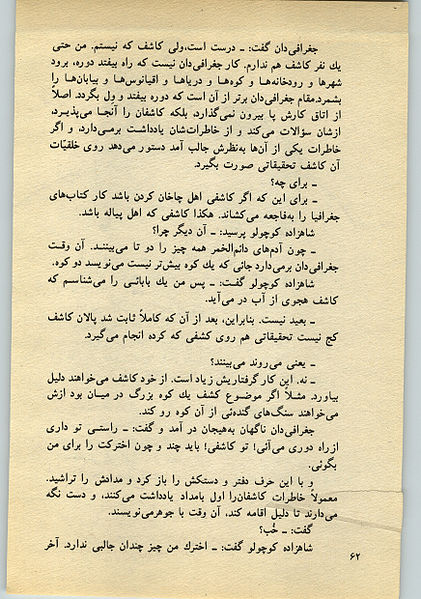 جغرافی‌دان گفت: ـ درست است،ولی کاشف که نیستم. من حتی
یك نفر کاشف هم ندارم. کار جغرافی‌دان نیست که راه بیفتد دوره، برود
شهرها و رودخانه‌ها و کوه‌ها و دریاها و اقیانوس‌ها و بیابان‌ها را
بشمرد.مقام جغرافی‌دان برتر از آن است که دوره بیفتد و ول بگردد. اصلاً
از اتاق کارش پا بیرون نمی‌گذارد، بلکه کاشفان را آنجا می‌پذیرد،
ازشان سؤالات می‌کند و از خاطرات‌شان یادداشت برمی‌دارد، و اگر
خاطرات یکی از آن‌ها به‌نظرش جالب آمد دستور می‌دهد روی خلقیّات
آن کاشف تحقیقاتی صورت بگیرد.
ـ برای چه؟
ـ برای این که اگر کاشفی اهل چاخان کردن باشد کار کتاب‌های
جغرافیا را به‌فاجعه می‌کشاند. هکذا کاشفی که اهل پیاله باشد.
شاهزاده کوچولو پرسید: ـ آن دیگر چرا؟
ـ چون آدم‌های دائم‌الخمر همه چیز را دو تا می‌بینند. آن وقت
جغرافی‌دان برمی‌دارد جائی که یك کوه بیش‌تر نیست می‌نویسد دو کوه.
شاهزاده کوچولو گفت: ـ پس من یك بابائی را می‌شناسم که
کاشف هجوی از آب در می‌آید.
ـ بعید نیست. بنابراین، بعد از آن که کاملاً ثابت شد پالان کاشف
کج نیست تحقیقاتی هم روی کشفی که کرده انجام می‌گیرد.
ـ یعنی می‌روند می‌بینند؟
ـ نه. این کار گرفتاریش زیاد است. از خود کاشف می‌خواهند دلیل
بیاورد. مثلاً اگر موضوع کشف یك کوه بزرگ در میان بود ازش
می‌خواهند سنگ‌های گنده‌ئی از آن کوه رو کند.
جغرافی‌دان ناگهان به‌هیجان در آمد و گفت: ـ راستی تو داری
ازراه دوری می‌آئی! تو کاشفی! باید چند و چون اخترکت را برای من
بگوئی.
و با این حرف دفتر و دستکش را باز کرد و مدادش را تراشید.
معمولاً خاطرات کاشفان‌را اول بامداد یادداشت می‌کنند، و دست نگه
می‌دارند تا دلیل اقامه کند، آن وقت با جوهرمی‌نویسند.
گفت: ـ خُب؟
شاهزاده کوچولو گفت: ـ اخترك من چیز چندان جالبی ندارد. آخر
۶۲